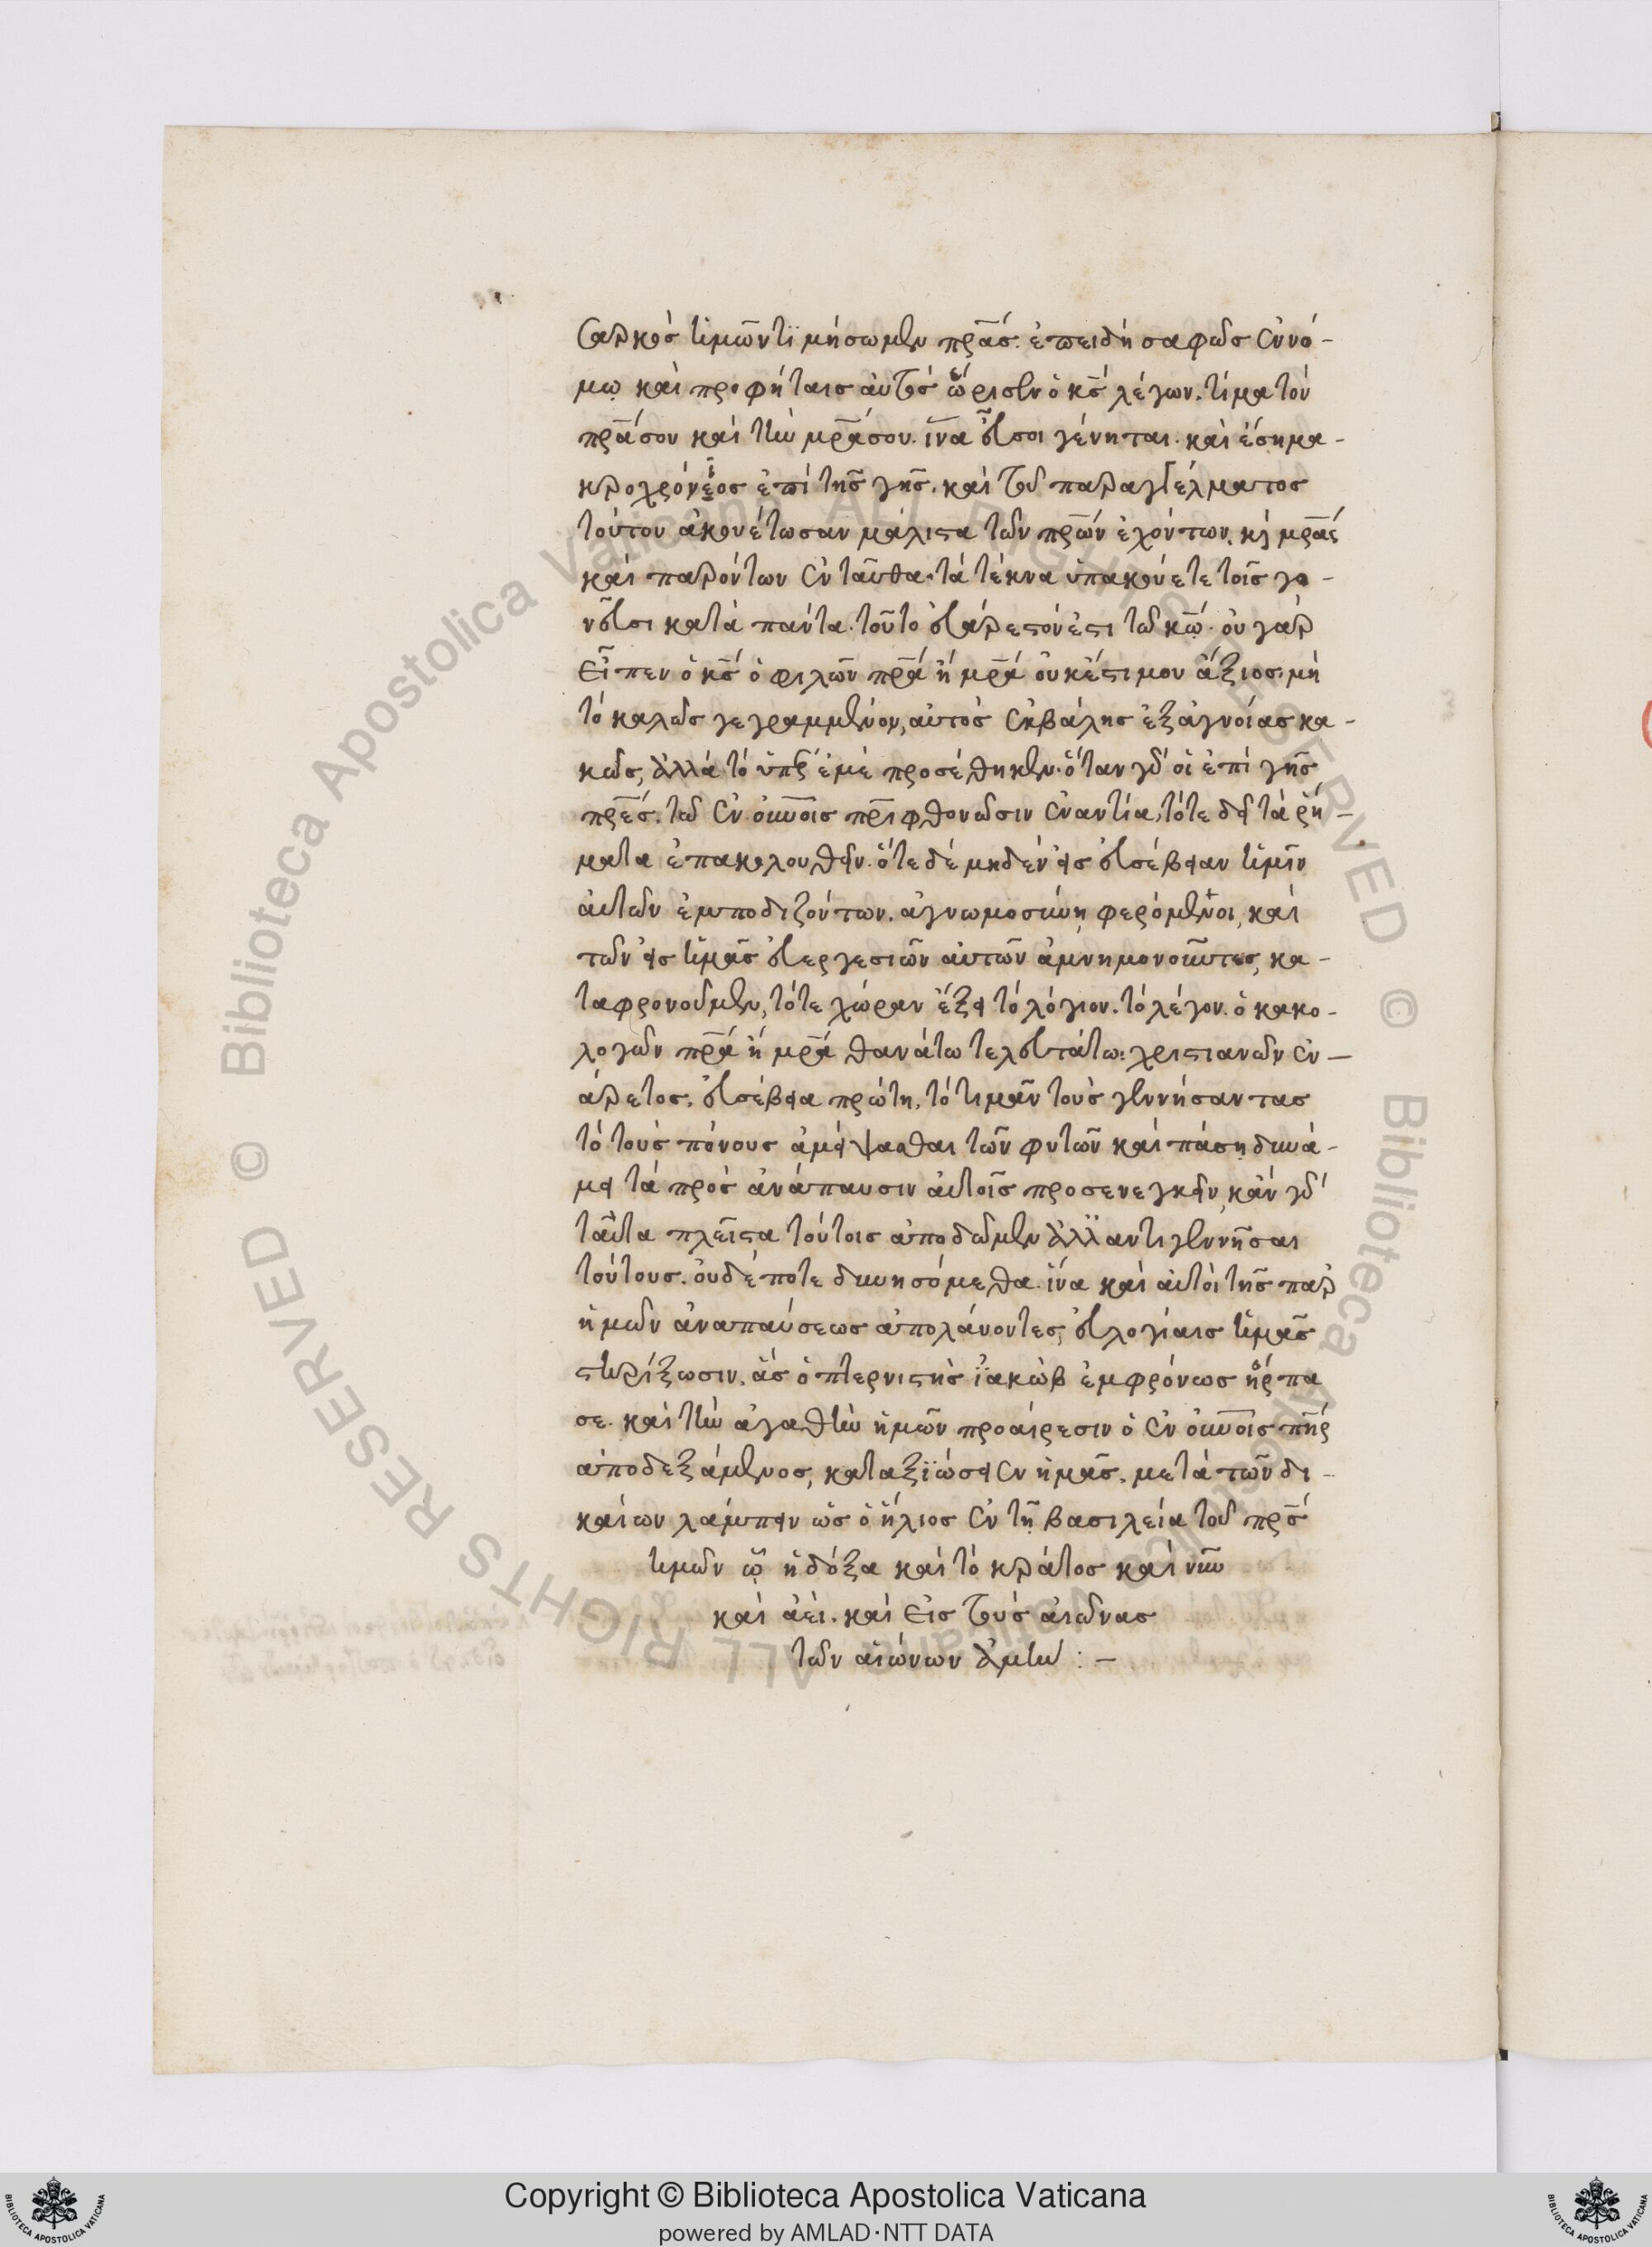 σαρκὸς ἡμῶν τιμήσωμεν πρᾱς. ἐπειδὴ σαφῶς ἐν νό-
μῳ καὶ προφήταις αὐτὸς ὥρισεν ὁ κς λέγων. τίμα τὸν
πρᾱ σου καὶ τὴν μρᾱ σου. ἵνα εὖ σοι γένηται. καὶ ἔσῃ μα-
κροχρόνιος ἐπὶ τῆς γῆς. καὶ τοῦ παραγγέλματος
τούτου ἀκουέτωσαν μάλιστα τῶν πρων ἐχόντων, κὶ μρας
καὶ παρόντων ἐνταῦθα. τὰ τέκνα ὑπακούετε τοῖς γο-
νεῦσι κατὰ πάντα. τοῦτο εὐάρεστόν ἐστι τῷ κω. οὐ γὰρ
εἶπεν ὁ κς ὁ φιλῶν πρα ἢ μρα οὐκ ἔστι μου ἄξιος. μὴ
τὸ καλῶς γεγραμμένον, αὐτὸς ἐκβάλῃς ἐξ ἀγνοίας κα-
κῶς, ἀλλὰ τὸ ὑπὲρ ἐμὲ προσέθηκεν. ὅταν γὰρ οἱ ἐπὶ γῆς
πρες. τῷ ἐν οὐνοις πρι φθονῶσιν ἐναντία, τότε δεῖ τὰ ῥή-
ματα ἐπακολουθεῖν. ὅτε δὲ μηδὲν εἰς εὐσέβειαν ἡμῖν
αὐτῶν ἐμποδιζόντων. ἀγνωμοσύνῃ φερόμενοι, καὶ
τῶν εἰς ἡμᾶς εὐεργεσιῶν αὐτῶν ἀμνημονοῦντες, κα-
ταφρονοῦμεν, τότε χώραν ἕξει τὸ λόγιον. τὸ λέγον. ὁ κακο-
λογῶν πρα ἢ μρα θανάτω τελευτάτω: χριστιανῶν ἐν-
άρετος. εὐσέβεια πρώτη, τὸ τιμᾶν τοὺς γεννήσαντας
τὸ τοὺς πόνους ἀμείψασθαι τῶν φυτῶν καὶ πάσῃ δυνά-
μει τὰ πρὸς ἀνάπαυσιν αὐτοῖς προσενεγκεῖν, κἂν γὰρ
ταῦτα πλεῖστα τούτοις ἀποδῶμεν ἀλλ' ἀντιγεννῆσαι
τούτους. οὐδέποτε δυνησόμεθα. ἵνα καὶ αὐτοὶ τῆς παρ
ἡμῶν ἀναπαύσεως ἀπολάυοντες, εὐλογίαις ἡμᾶς
στηρίξωσιν. ἃς ὁ πτερνιστὴς ἰακὼβ ἐμφρόνως ἥρπα
σε. καὶ τὴν ἀγαθὴν ἡμῶν προαίρεσιν ὁ ἐν οὐνοις πηρ
ἀποδεξάμενος, καταξιώσει ἐν ἡμᾶς, μετὰ τῶν δι-
καίων λάμπειν ὡς ὁ ἥλιος ἐν τῇ βασιλεία τοῦ πρς
ἡμῶν ᾧ ἡ δόξα καὶ τὸ κράτος καὶ νῦν
καὶ ἀεὶ. καὶ εἰς τοὺς αἰῶνας
τῶν αἰώνων ἀμήν : –
© Biblioteca Apostolica Vaticana ALL RIGHTS RESERVED © Biblioteca Apostolica Vaticana ALL RIGHTS RESERVED
Copyright © Biblioteca Apostolica Vaticana
powered by AMLAD·NTT DATA